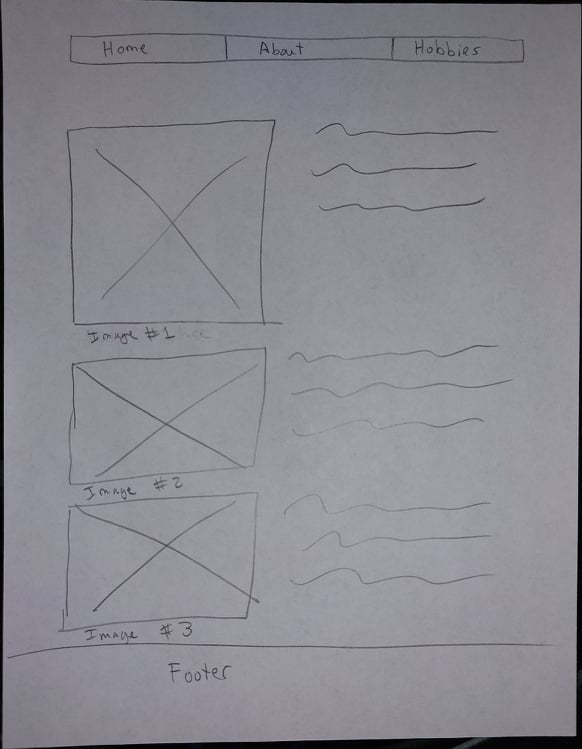 Home About Hobbies
Image #1
Image #2
Image #3
Footer